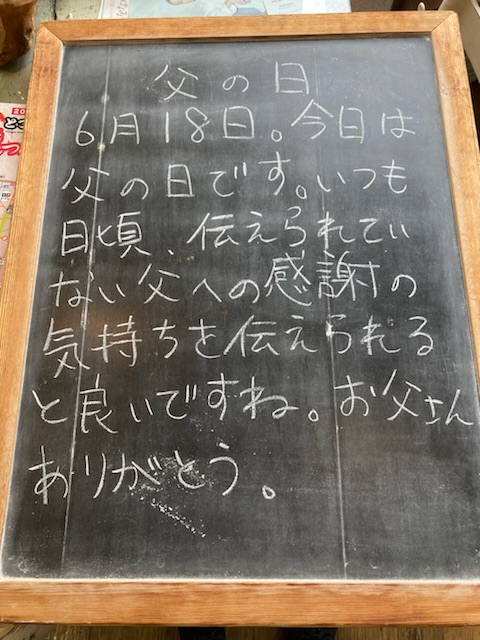 父の日
6月18日。今日は
父の日です。いつも
日頃、伝えられてい
ない父への感謝の
気持ちを伝えられる
と良いですね。お父さん
ありがとう。